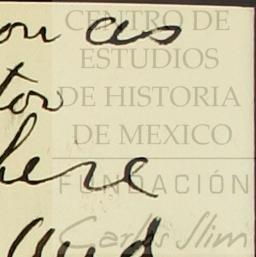 on as
CENTRO DE
ESTUDIOS
tor
DE HISTORIA
DE MEXICO
here
FUNDACIÓN
Carlos Slim
and